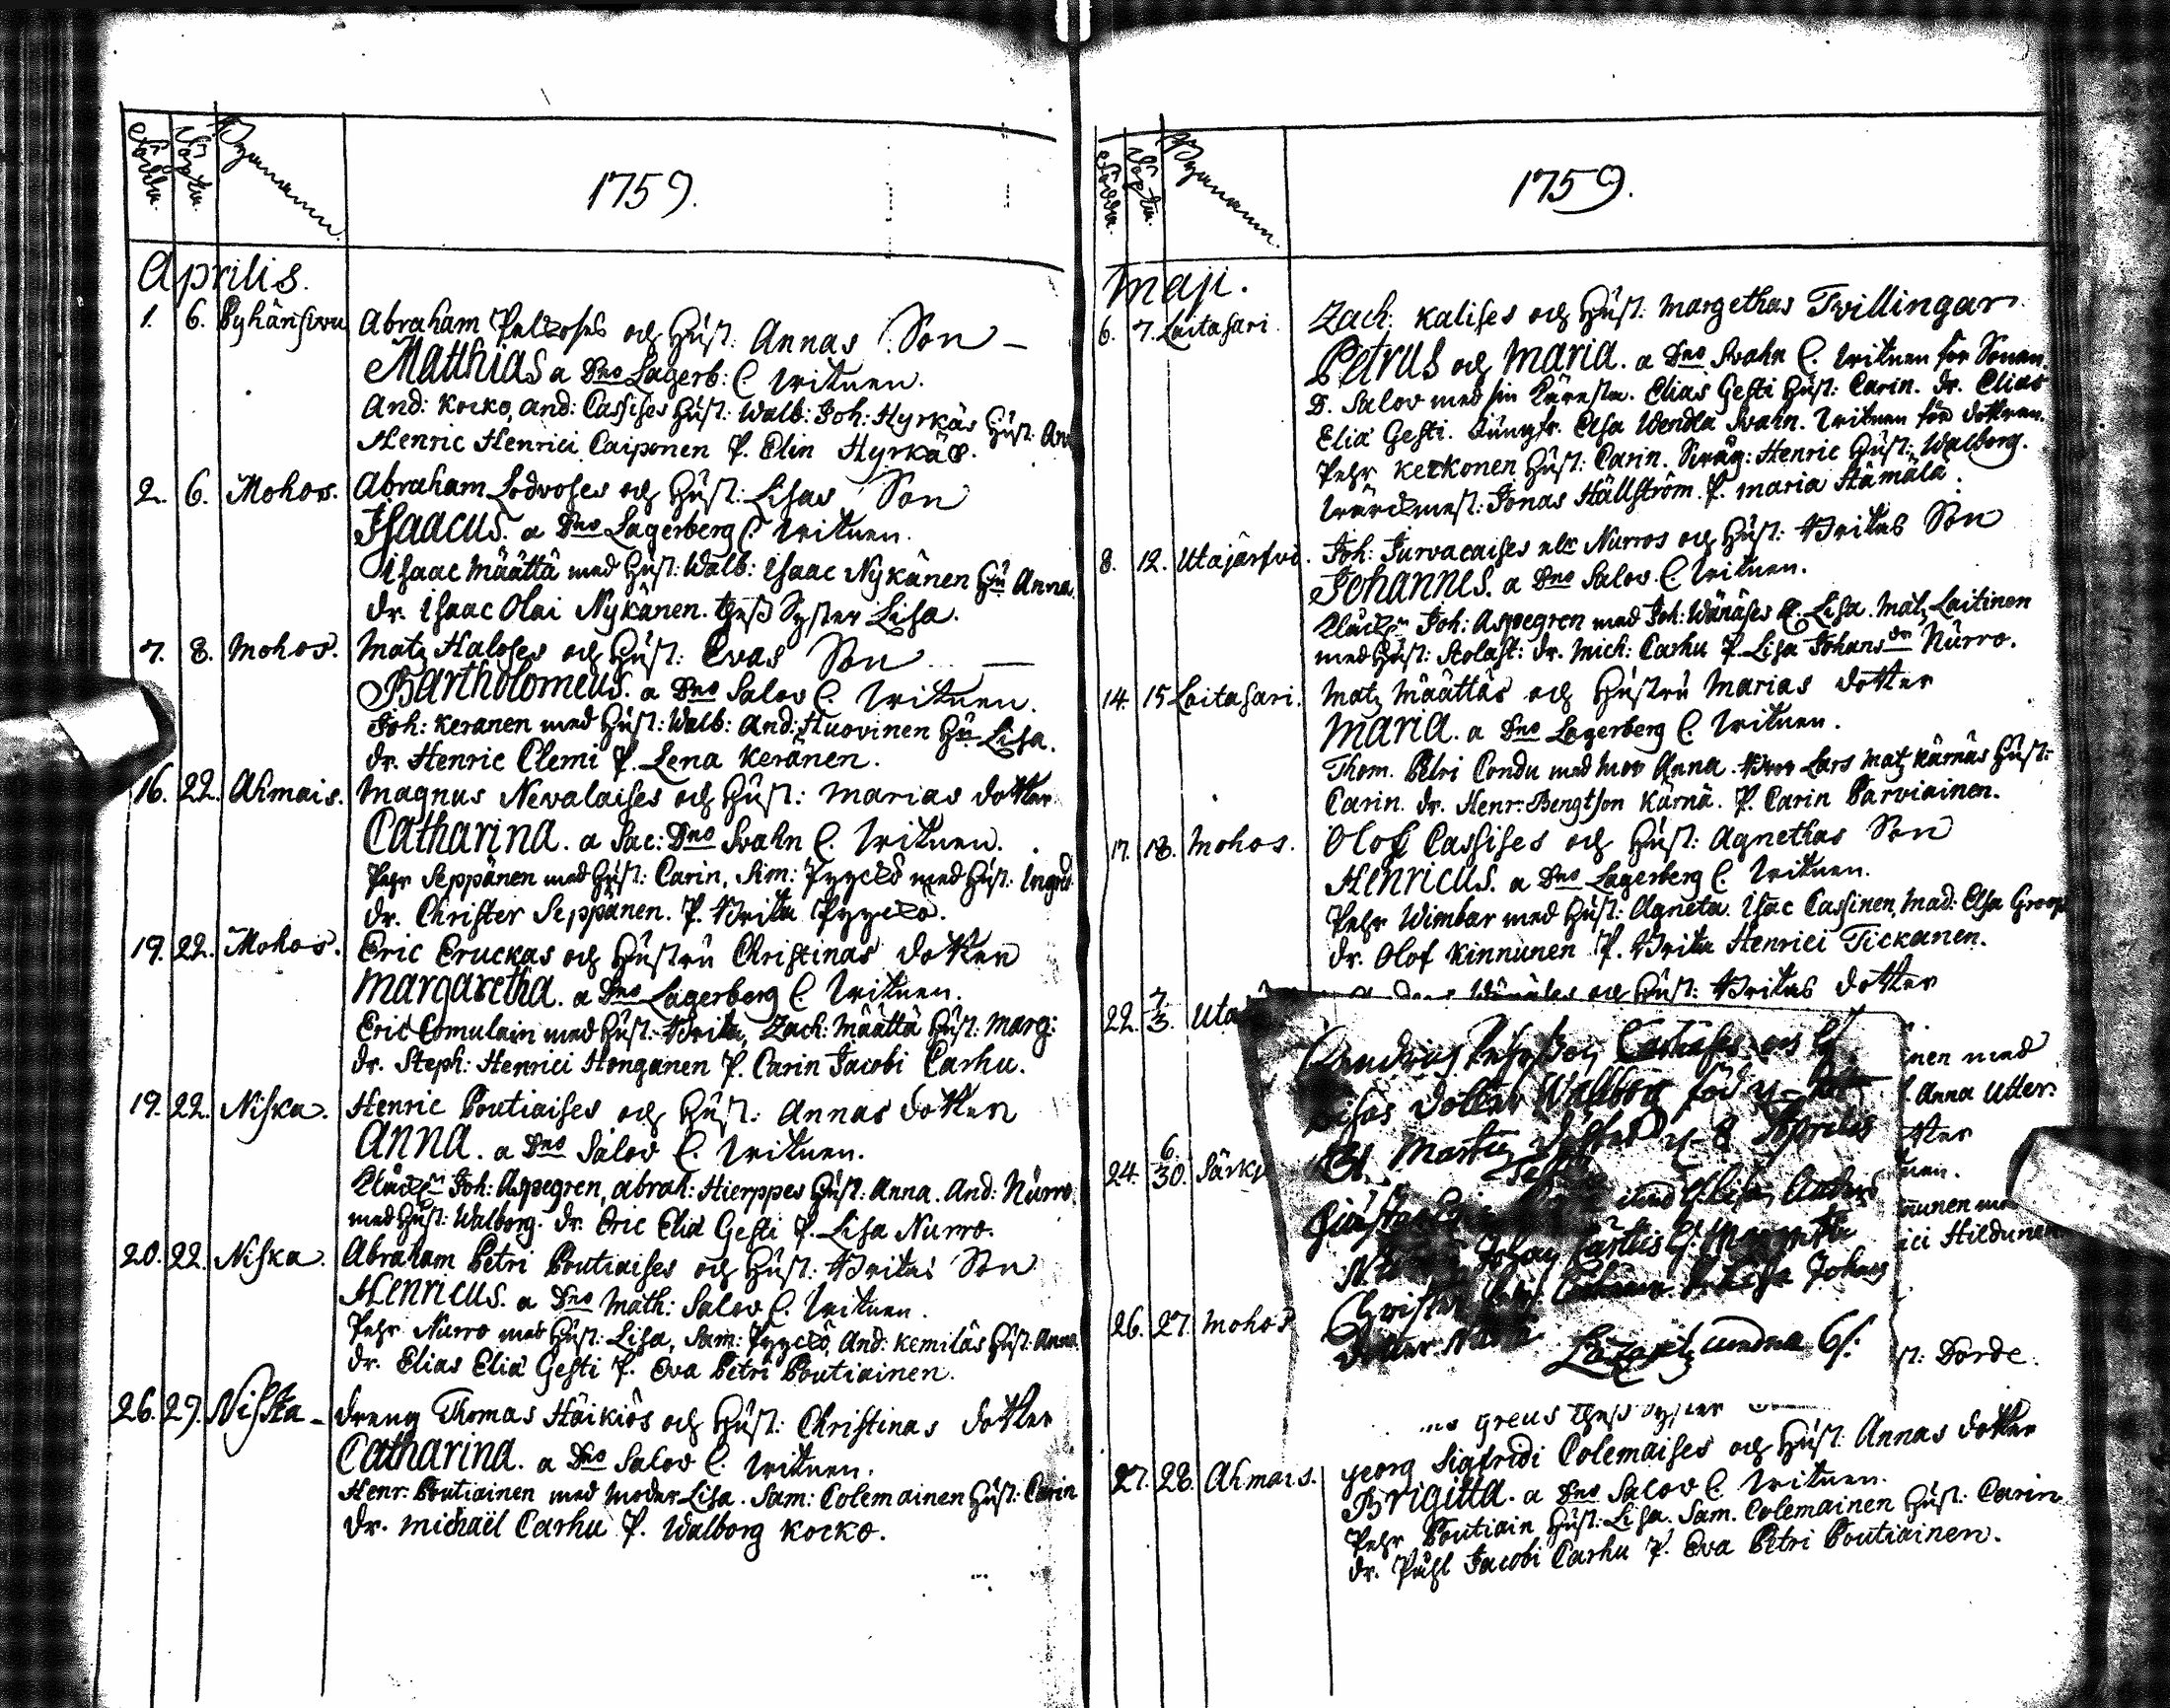 Födde. Döpte. Byanamn.
1759.
Aprilis.
1. 6. Pyhänsivu Abraham Peldoses och Hust: Annas Son
Matthias a Dno Lagerb: C. Witnen.
And: Kocko, And: Cassises Hust: Walb: Joh: Hyrkäs Hust: An
Henric Henrici Caiponen P. Elin Hyrkäs.
2. 6. Mohos. Abraham Lodvoses och Hust: Lisas Son
Isaacus. a Dno Lagerberg C. Witnen.
Isaac Määttä med Hust: Walb: Isaac Nykänen Hu Anna.
dr. Isaac Olai Nykänen. thess Syster Lisa.
7. 8. Mohos. Matz Haloses och Hust: Evas Son
Bartholomeus. a Dno Salov C. Witnen.
Joh: Keranen med Hust: Walb: And: Huovinen Hu Lisa.
dr. Henric Clemi P. Lena Keränen.
16. 22. Ahmais. Magnus Nevalaises och Hust: Marias dotter
Catharina. a Sac: Dno Svahn C. Witnen.
Pehr Seppänen med Hust: Carin, Sim: Pyyckö med Hust: Ingrid
dr. Christer Seppänen. P. Brita Pyyckö.
19. 22. Mohos. Eric Cruckas och Hustru Christinas dotter
Margaretha. a Dno Lagerberg C. Witnen.
Eric Comulain med Hust: Brita, Zach: Määttä Hust: Marg:
dr. Steph: Henrici Honganen P. Carin Jacobi Carhu.
19. 22. Niska. Henric Poutiaises och Hust: Annas dotter
Anna. a Dno Salov C. Witnen.
Klåck:n Joh: Aspegren, Abrah: Hierppes Hust: Anna. And: Nurro
med Hust: Walborg. dr. Eric Eliæ Gesti P. Lisa Nurro.
20. 22. Niska. Abraham Petri Poutiaises och Hust: Britas Son
Henricus. a Dno Math: Salov C. Witnen.
Pehr Nurro med Hust: Lisa, Sam: Pyyckö, And: Kemiläs Hust: Anna.
dr. Elias Eliæ Gesti P. Eva Petri Poutiainen.
26. 29. Niska dreng Thomas Häikiös och Hust: Christinas dotter
Catharina. a Dno Salov C. Witnen.
Henr: Poutiainen med moder Lisa. Sam: Colemainen Hust: Carin
dr. Michaël Carhu P. Walborg Kocko.
Födde. Döpte. Byanamn.
1759.
Maji.
6. 7. Laitasari. Zach: Kalises och Hust: Margethas Tvillingar
Petrus och Maria. a Dno Svahn C. Witnen för Sonen.
D. Salov med sin Käresta. Elias Gesti Hust: Carin. dr. Elias
Eliæ Gesti. Jungfr. Elsa Wendla Svahn. Witnen för dottren.
Pehr Keckonen Hust: Carin. Henric Hust: Walborg.
Jonas Hällström. P. Maria Hämälä.
8. 12. Utajärfvi. Joh: Jurvacaises eller Nurros och Hust: Britas Son
Johannes. a Dno Salov. C. Witnen.
Klåck:n Joh: Aspegren med Joh: Wänäses E. Lisa. Matz Laitinen
med Hust: Stolast: dr. Mich: Carhu P. Lisa Johansdr Nurro.
14. 15 Laitasari. Matz Määttäs och Hustru Marias dotter
Maria. a Dno Lagerberg C. Witnen.
Thom. Petri Condu med mor Anna. Lars Matz Kärnäs Hust:
Carin. dr. Henr: Bengtson Kärnä. P. Carin Parviainen.
17. 18. Mohos. Olof Cassises och Hust: Agnethas Son
Henricus. a Dno Lagerberg C. Witnen.
Pehr Wimbar med Hust: Agneta. Isac Cassinen, Mad: Elsa Groop
dr. Olof Kinnunen P. Brita Henrici Tickanen.
22. 7/3. Uta och Hust: Britas dotter
nen med
Anna Utter.
24. 6/30. Särk tter
nen.
nunen me
ici Hildunen
26. 27. Mohos
st: Dorde.
Lisas dotter Wallborg född
8 Aprilis
Johan
Christer Johans
dotter
greus thess syster
27. 28. Ahmais. Georg Sigfridi Colemaises och Hust: Annas dotter
Brigitta. a Dno Salov C. Witnen.
Pehr Poutiain Hust: Lisa. Sam. Colemainen Hust: Carin
dr. Påhl Jacobi Carhu P. Eva Petri Poutiainen.